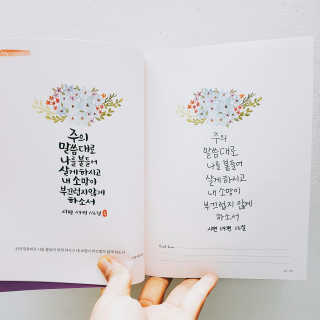 주의
말씀대로
나를 붙들어
살게 하시고
내 소망이
부끄럽지않게
하소서
시편 119편 116절
주의
말씀대로
나를 붙들어
살게 하시고
내 소망이
부끄럽지 않게
하소서
시편 119편 116절